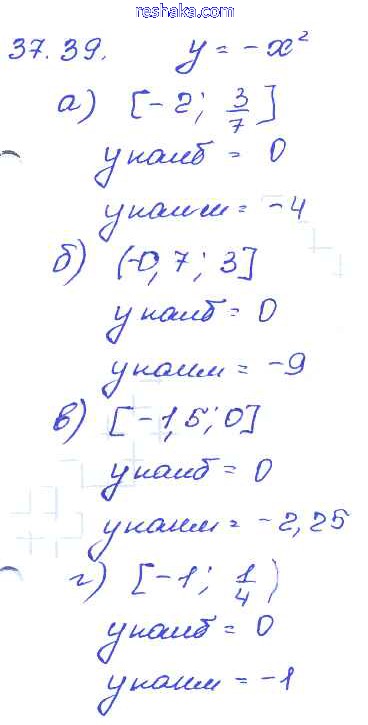 reshaka.com
37.39. y = -x²
а) [-2; 3/7]
yнаиб = 0
yнаим = -4
б) (-0,7; 3]
yнаиб = 0
yнаим = -9
в) [-1,5; 0]
yнаиб = 0
yнаим = -2,25
г) [-1; 1/4)
yнаиб = 0
yнаим = -1